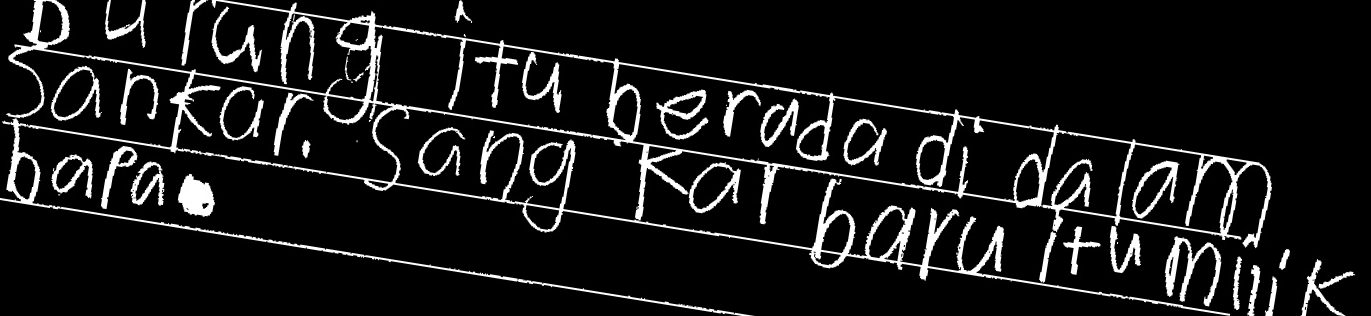 Burung itu berada di dalam
Sankar. Sang kar baru itu milik
bapa.